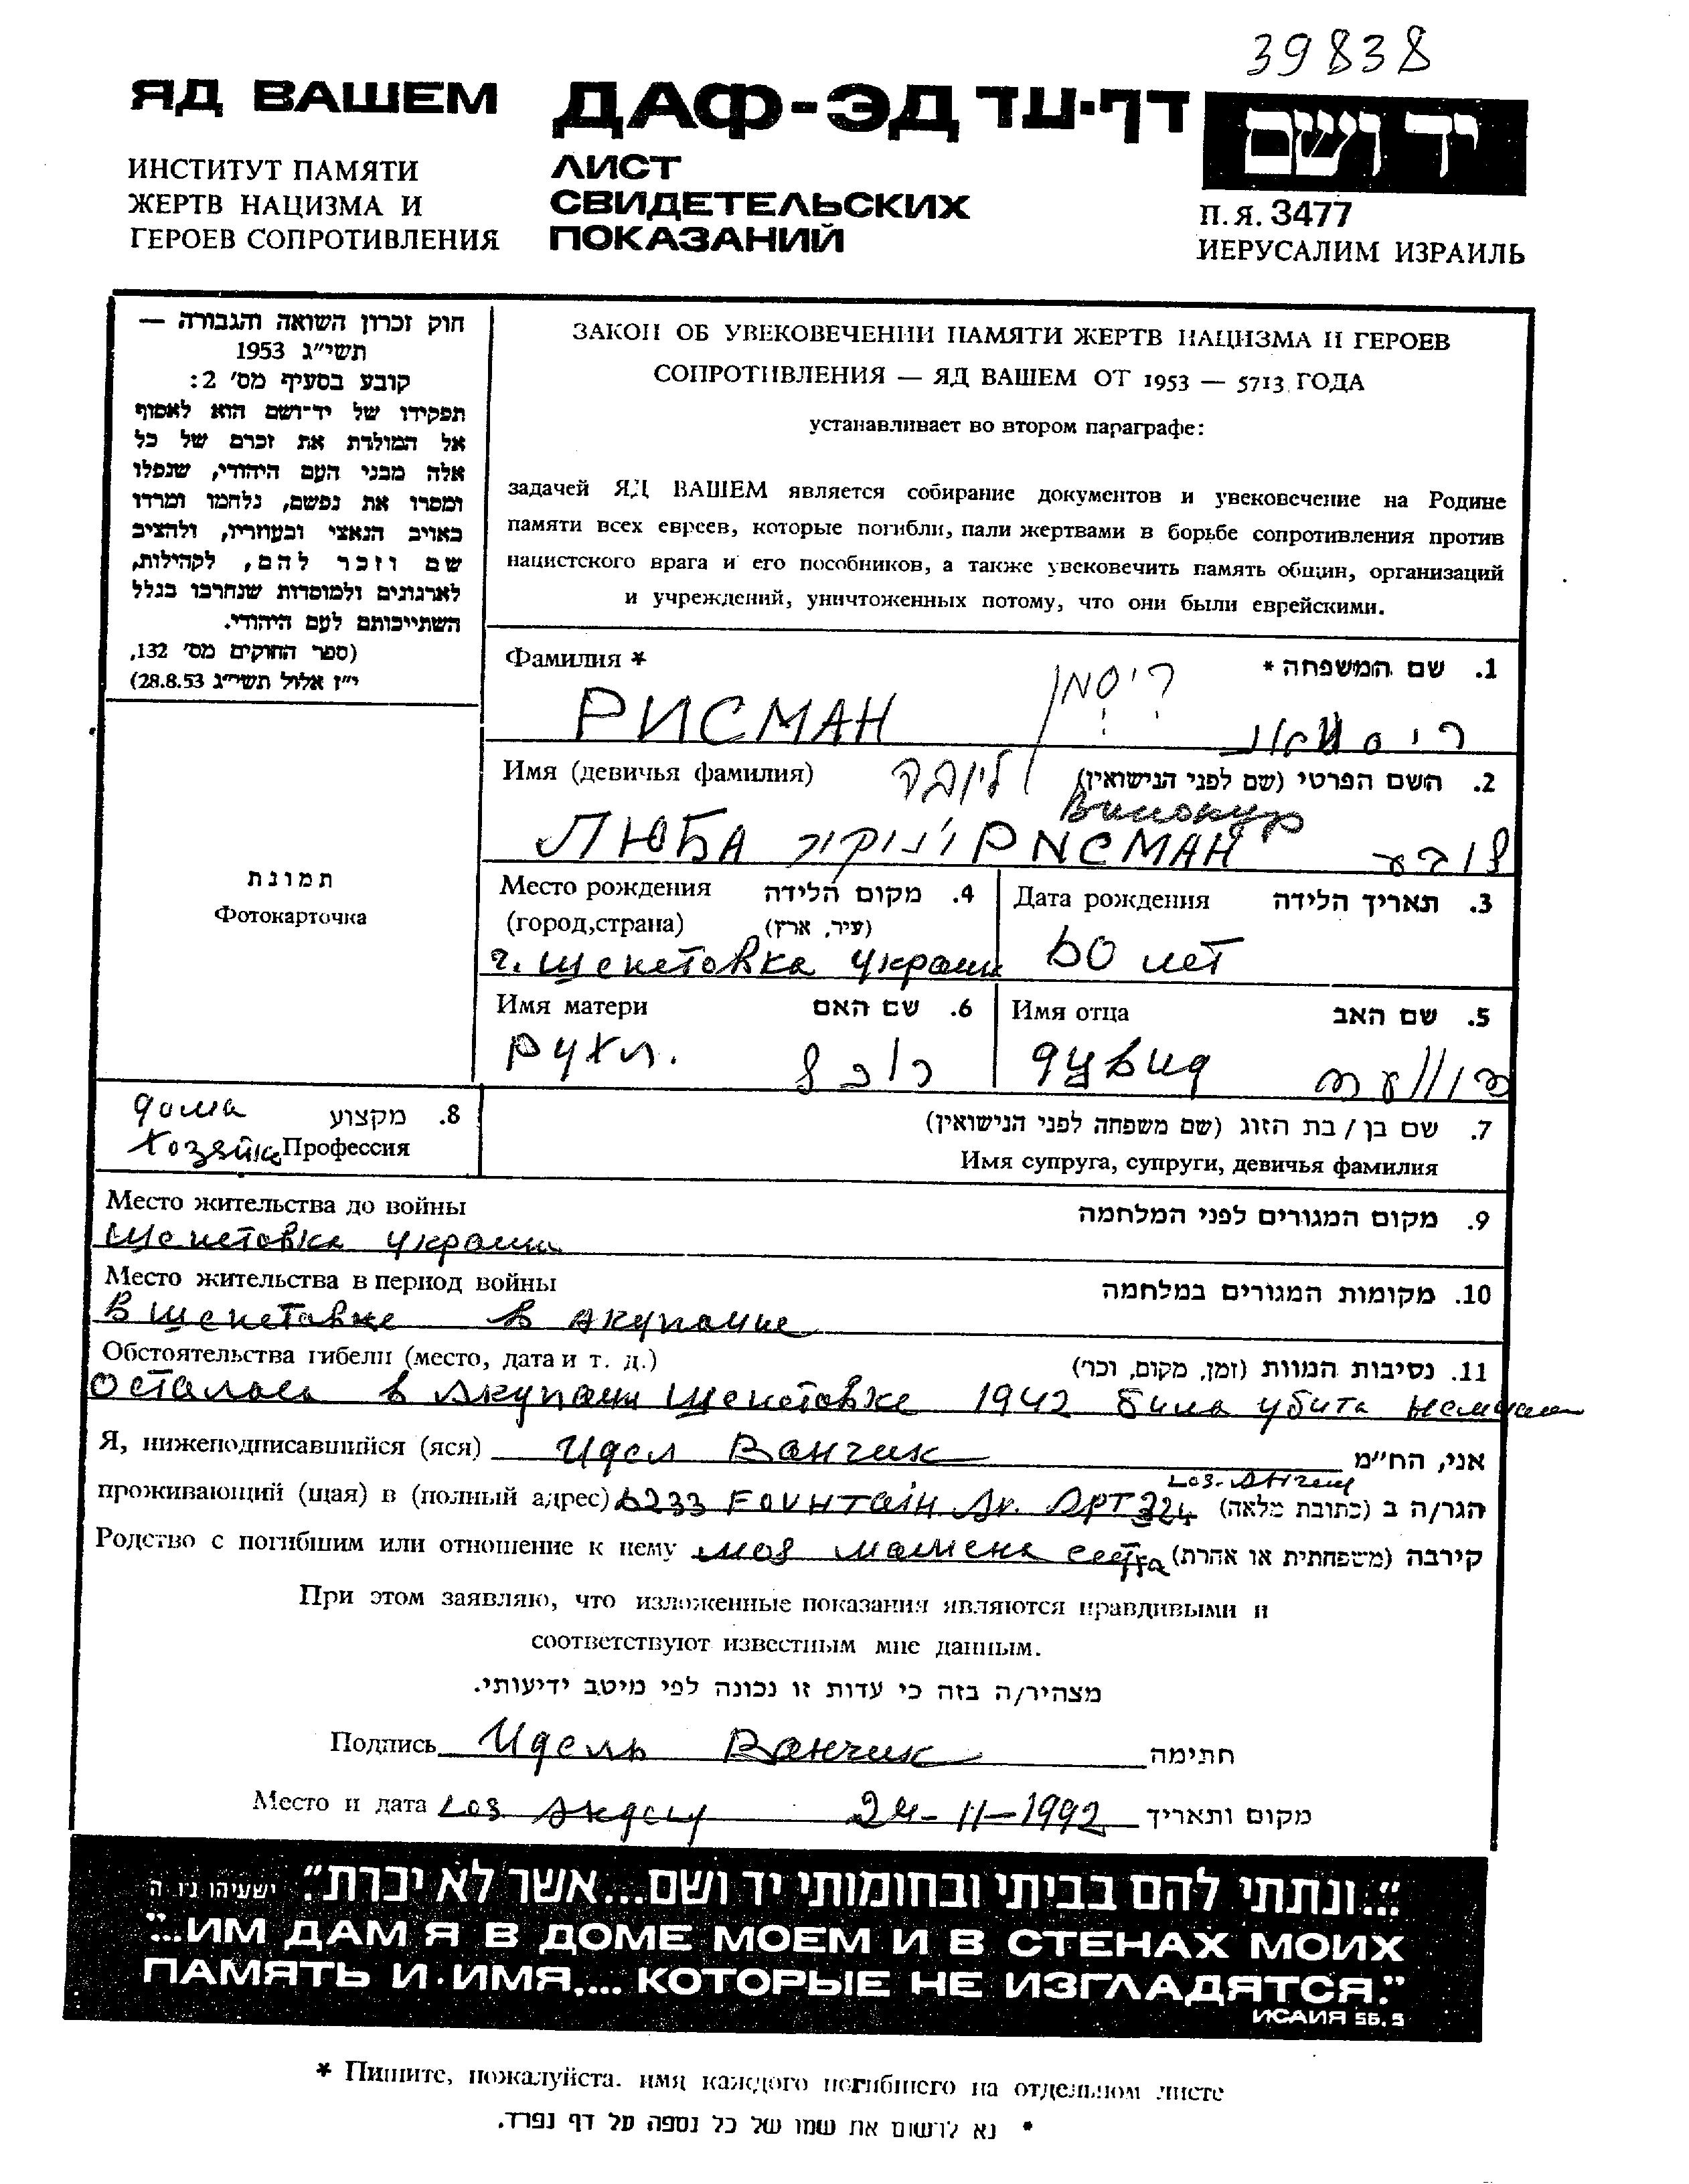 39838
ЯД ВАШЕМ
ДАФ-ЭД דף-עד
יד ושם
ИНСТИТУТ ПАМЯТИ
ЖЕРТВ НАЦИЗМА И
ГЕРОЕВ СОПРОТИВЛЕНИЯ
ЛИСТ
СВИДЕТЕЛЬСКИХ
ПОКАЗАНИЙ
П.Я. 3477
ИЕРУСАЛИМ ИЗРАИЛЬ
חוק זכרון השואה והגבורה —
תשי״ג 1953
קובע בסעיף מס׳ 2:
תפקידו של יד־ושם הוא לאסוף
אל המולדת את זכרם של כל
אלה מבני העם היהודי, שנפלו
ומסרו את נפשם, נלחמו ומרדו
באויב הנאצי ובעוזריו, ולהציב
שם וזכר להם, לקהילות,
לארגונים ולמוסדות שנחרבו בגלל
השתייכותם לעם היהודי.
(ספר החוקים מס׳ 132,
י״ז אלול תשי״ג 28.8.53)
ЗАКОН ОБ УВЕКОВЕЧЕНИИ ПАМЯТИ ЖЕРТВ НАЦИЗМА И ГЕРОЕВ
СОПРОТИВЛЕНИЯ — ЯД ВАШЕМ ОТ 1953 — 5713 ГОДА
устанавливает во втором параграфе:
задачей ЯД ВАШЕМ является собирание документов и увековечение на Родине
памяти всех евреев, которые погибли, пали жертвами в борьбе сопротивления против
нацистского врага и его пособников, а также увековечить память общин, организаций
и учреждений, уничтоженных потому, что они были еврейскими.
Фамилия * 1. שם המשפחה *
РИСМАН ריסמן
Имя (девичья фамилия) 2. השם הפרטי (שם לפני הנישואין)
ליובה Винокур
ЛЮБА וינוקור РИСМАН
Место рождения 4. מקום הלידה
(город,страна) (עיר, ארץ)
г. Шепетовка Украин
Дата рождения 3. תאריך הלידה
60 лет
Имя матери 6. שם האם
Рухл.
Имя отца 5. שם האב
Дувид
תמונת
Фотокарточка
дома 8. מקצוע
хозяйка Профессия
7. שם בן / בת הזוג (שם משפחה לפני הנישואין)
Имя супруга, супруги, девичья фамилия
Место жительства до войны 9. מקום המגורים לפני המלחמה
Шепетовка Украина
Место жительства в период войны 10. מקומות המגורים במלחמה
В Шепетовке в акупацие
Обстоятельства гибели (место, дата и т. д.) 11. נסיבות המוות (זמן, מקום, וכר׳)
осталась в акупации Шепетовке 1942 била убита немцами
Я, нижеподписавшийся (яся) Идел Ванчик אני, הח״מ
Los. Анжел
проживающий (щая) в (полный адрес) 6233 Fountain. Av. Apt 324 הגר/ה ב (כתובת מלאה)
Родство с погибшим или отношение к нему моя мамена сестра קירבה (משפחתית או אחרת)
При этом заявляю, что изложенные показания являются правдивыми и
соответствуют известным мне данным.
מצהיר/ה בזה כי עדות זו נכונה לפי מיטב ידיעותי.
Подпись Идель Ванчик חתימה
Место и дата Los 24-11-1992 מקום ותאריך
״...ונתתי להם בביתי ובחומותי יד ושם...אשר לא יכרת״. ישעיהו נו, ה
"...ИМ ДАМ Я В ДОМЕ МОЕМ И В СТЕНАХ МОИХ
ПАМЯТЬ И ИМЯ,... КОТОРЫЕ НЕ ИЗГЛАДЯТСЯ."
ИСАИЯ 56, 5
* Пишите, пожалуйста. имя каждого погибшего на отдельном листе
* נא לרשום את שמו של כל נספה על דף נפרד.